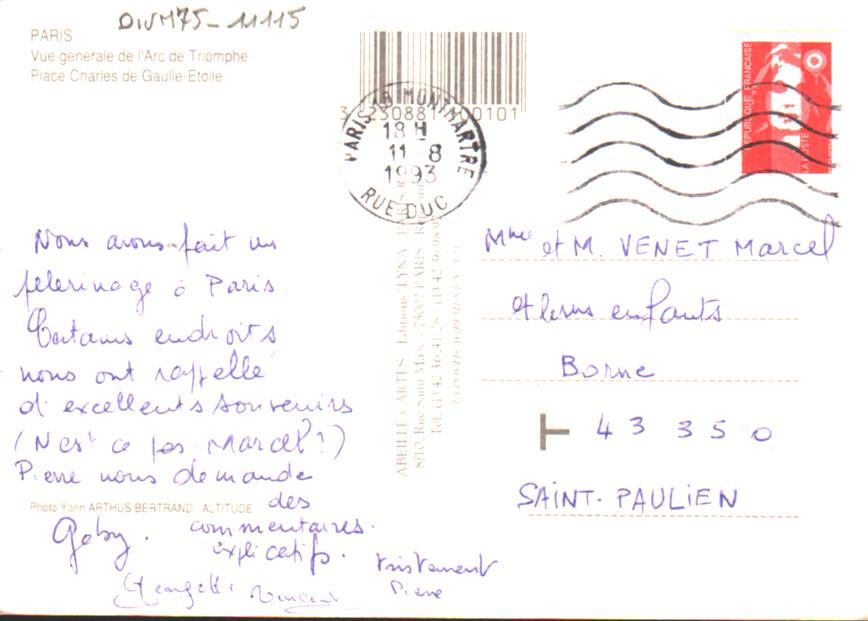 DIVM75-11115
PARIS
Vue generale de l'Arc de Triomphe
Place Charles de Gaulle-Etoile
3 230881 00101
PARIS 18 MONTMARTRE
18 H
11 - 8
1993
RUE DUC
REPUBLIQUE FRANÇAISE
LA POSTE
Nous avons fait un
pelerinage à Paris.
Certains endroits
nous ont rappellé
d'excellents souvenirs
(N'est ce pas Marcel?)
Pierre nous demande
des
commentaires
explicatifs.
Gaby.
Georgette Vincent
tristement
Pierre
Photo Yann ARTHUS BERTRAND ALTITUDE
ABEILLE-CARTES Editions "LYNA
8/10, Rue Saint-Marc 75002 PARIS
Tél. (1) 42.36.41.28
Mme et M. VENET Marcel
et leurs enfants
Borne
T 43 350
SAINT-PAULIEN